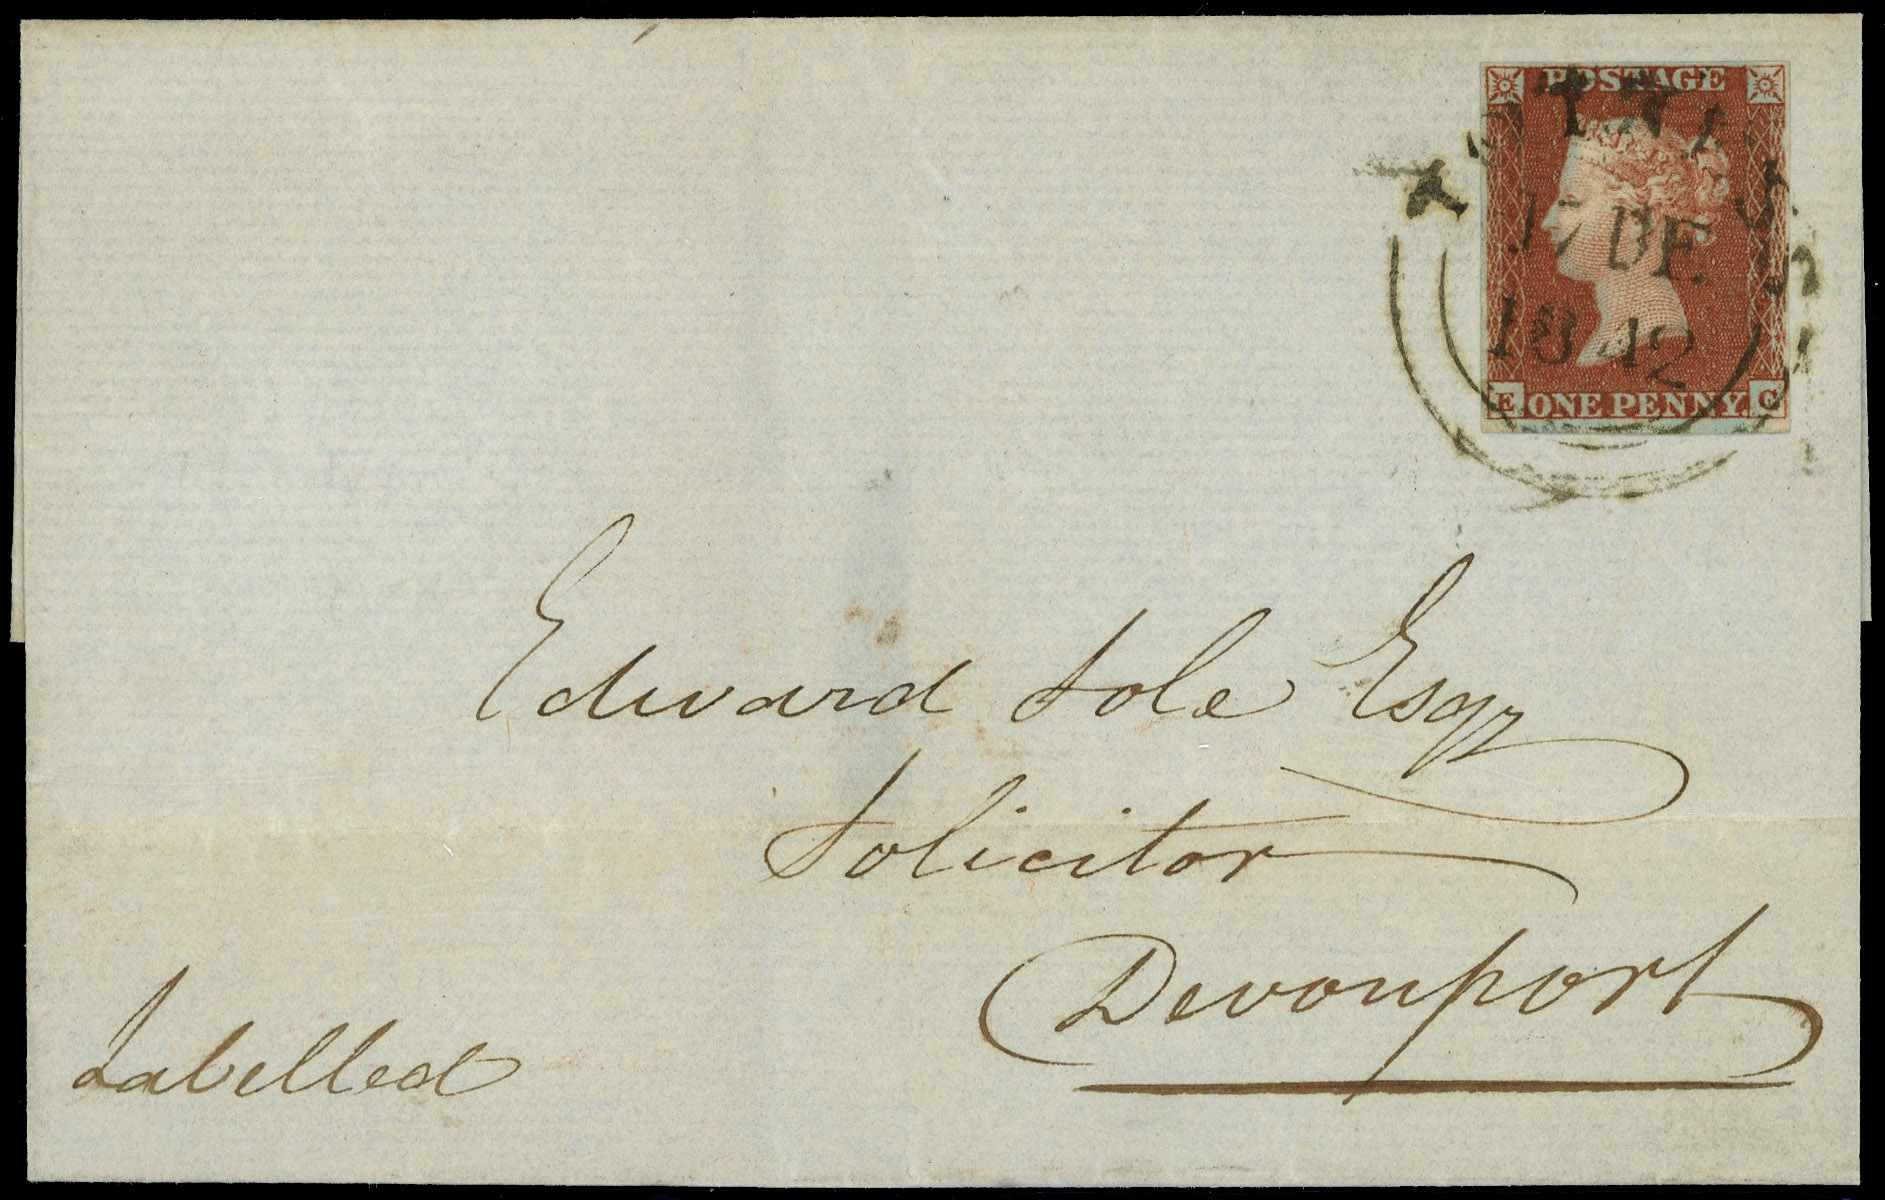 POSTAGE
17 DE
1842
E ONE PENNY G
Edward Sole Esqr
Solicitor
Devonport
Labelled